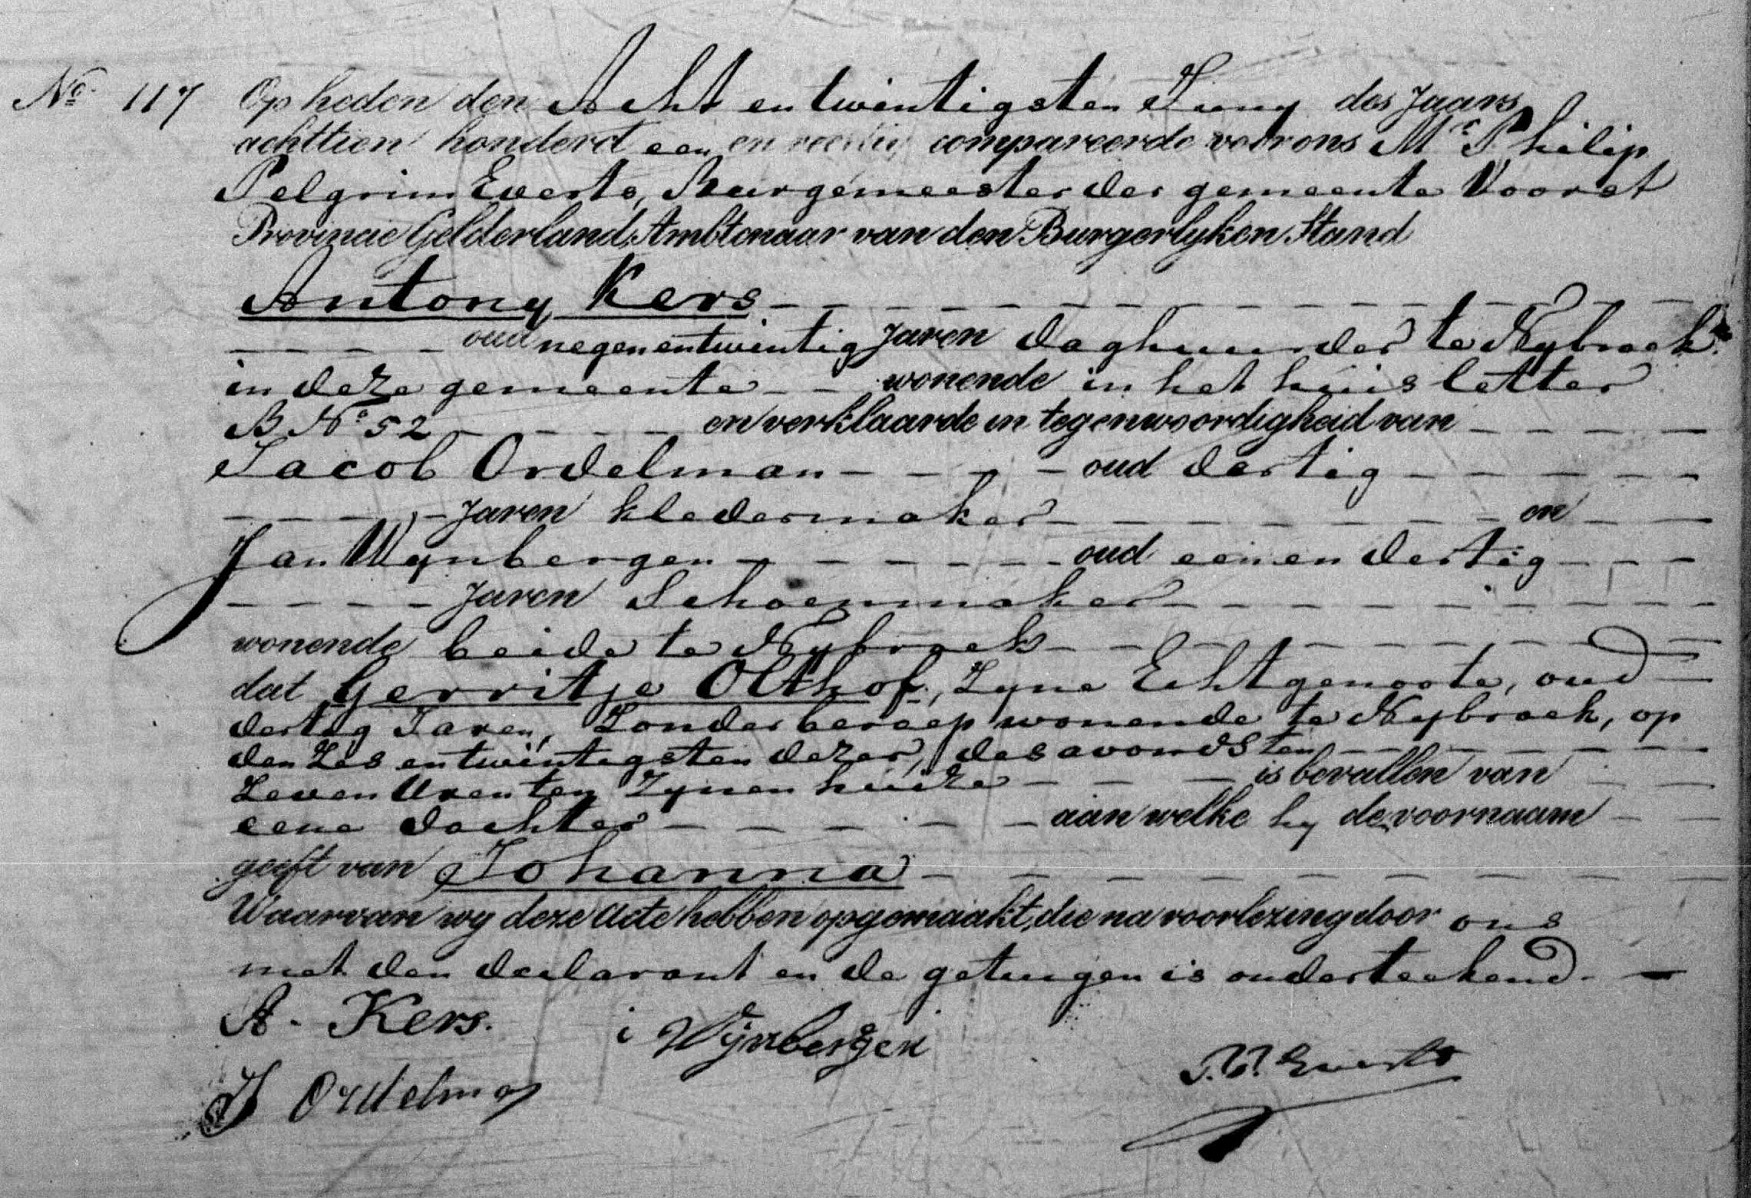 No. 117 Op heden den Acht en twintigsten Juny des Jaars
achttien honderd een en veertig compareerde voor ons Mr Philip
Pelgrim Everts, Burgemeester der gemeente Voorst
Provincie Gelderland, Ambtenaar van den Burgerlyken Stand
Antony Kers
oud negenentwintig Jaren daghuurder te Nybroek
in deze gemeente wonende in het huis letter
B No. 52 en verklaarde in tegenwoordigheid van
Jacob Ordelman oud dertig
Jaren kledermaker en
Jan Wynbergen oud een en dertig
Jaren Schoenmaker
wonende beide te Nybroek
dat Gerritje Olthof, Zyne Echtgenoote, oud
dertig Jaren, Zonder beroep wonende te Nybroek, op
den Zes en twintigsten dezer, des avonds ten
Zeven Uren ten Zynen huize is bevallen van
eene dochter aan welke hy de voornaam
geeft van Johanna
Waarvan wy deze Acte hebben opgemaakt, die na voorlezing door ons
met den declarant en de getuigen is onderteekend.
A. Kers. i Wijnbergen
P.P. Everts
J Ordelman